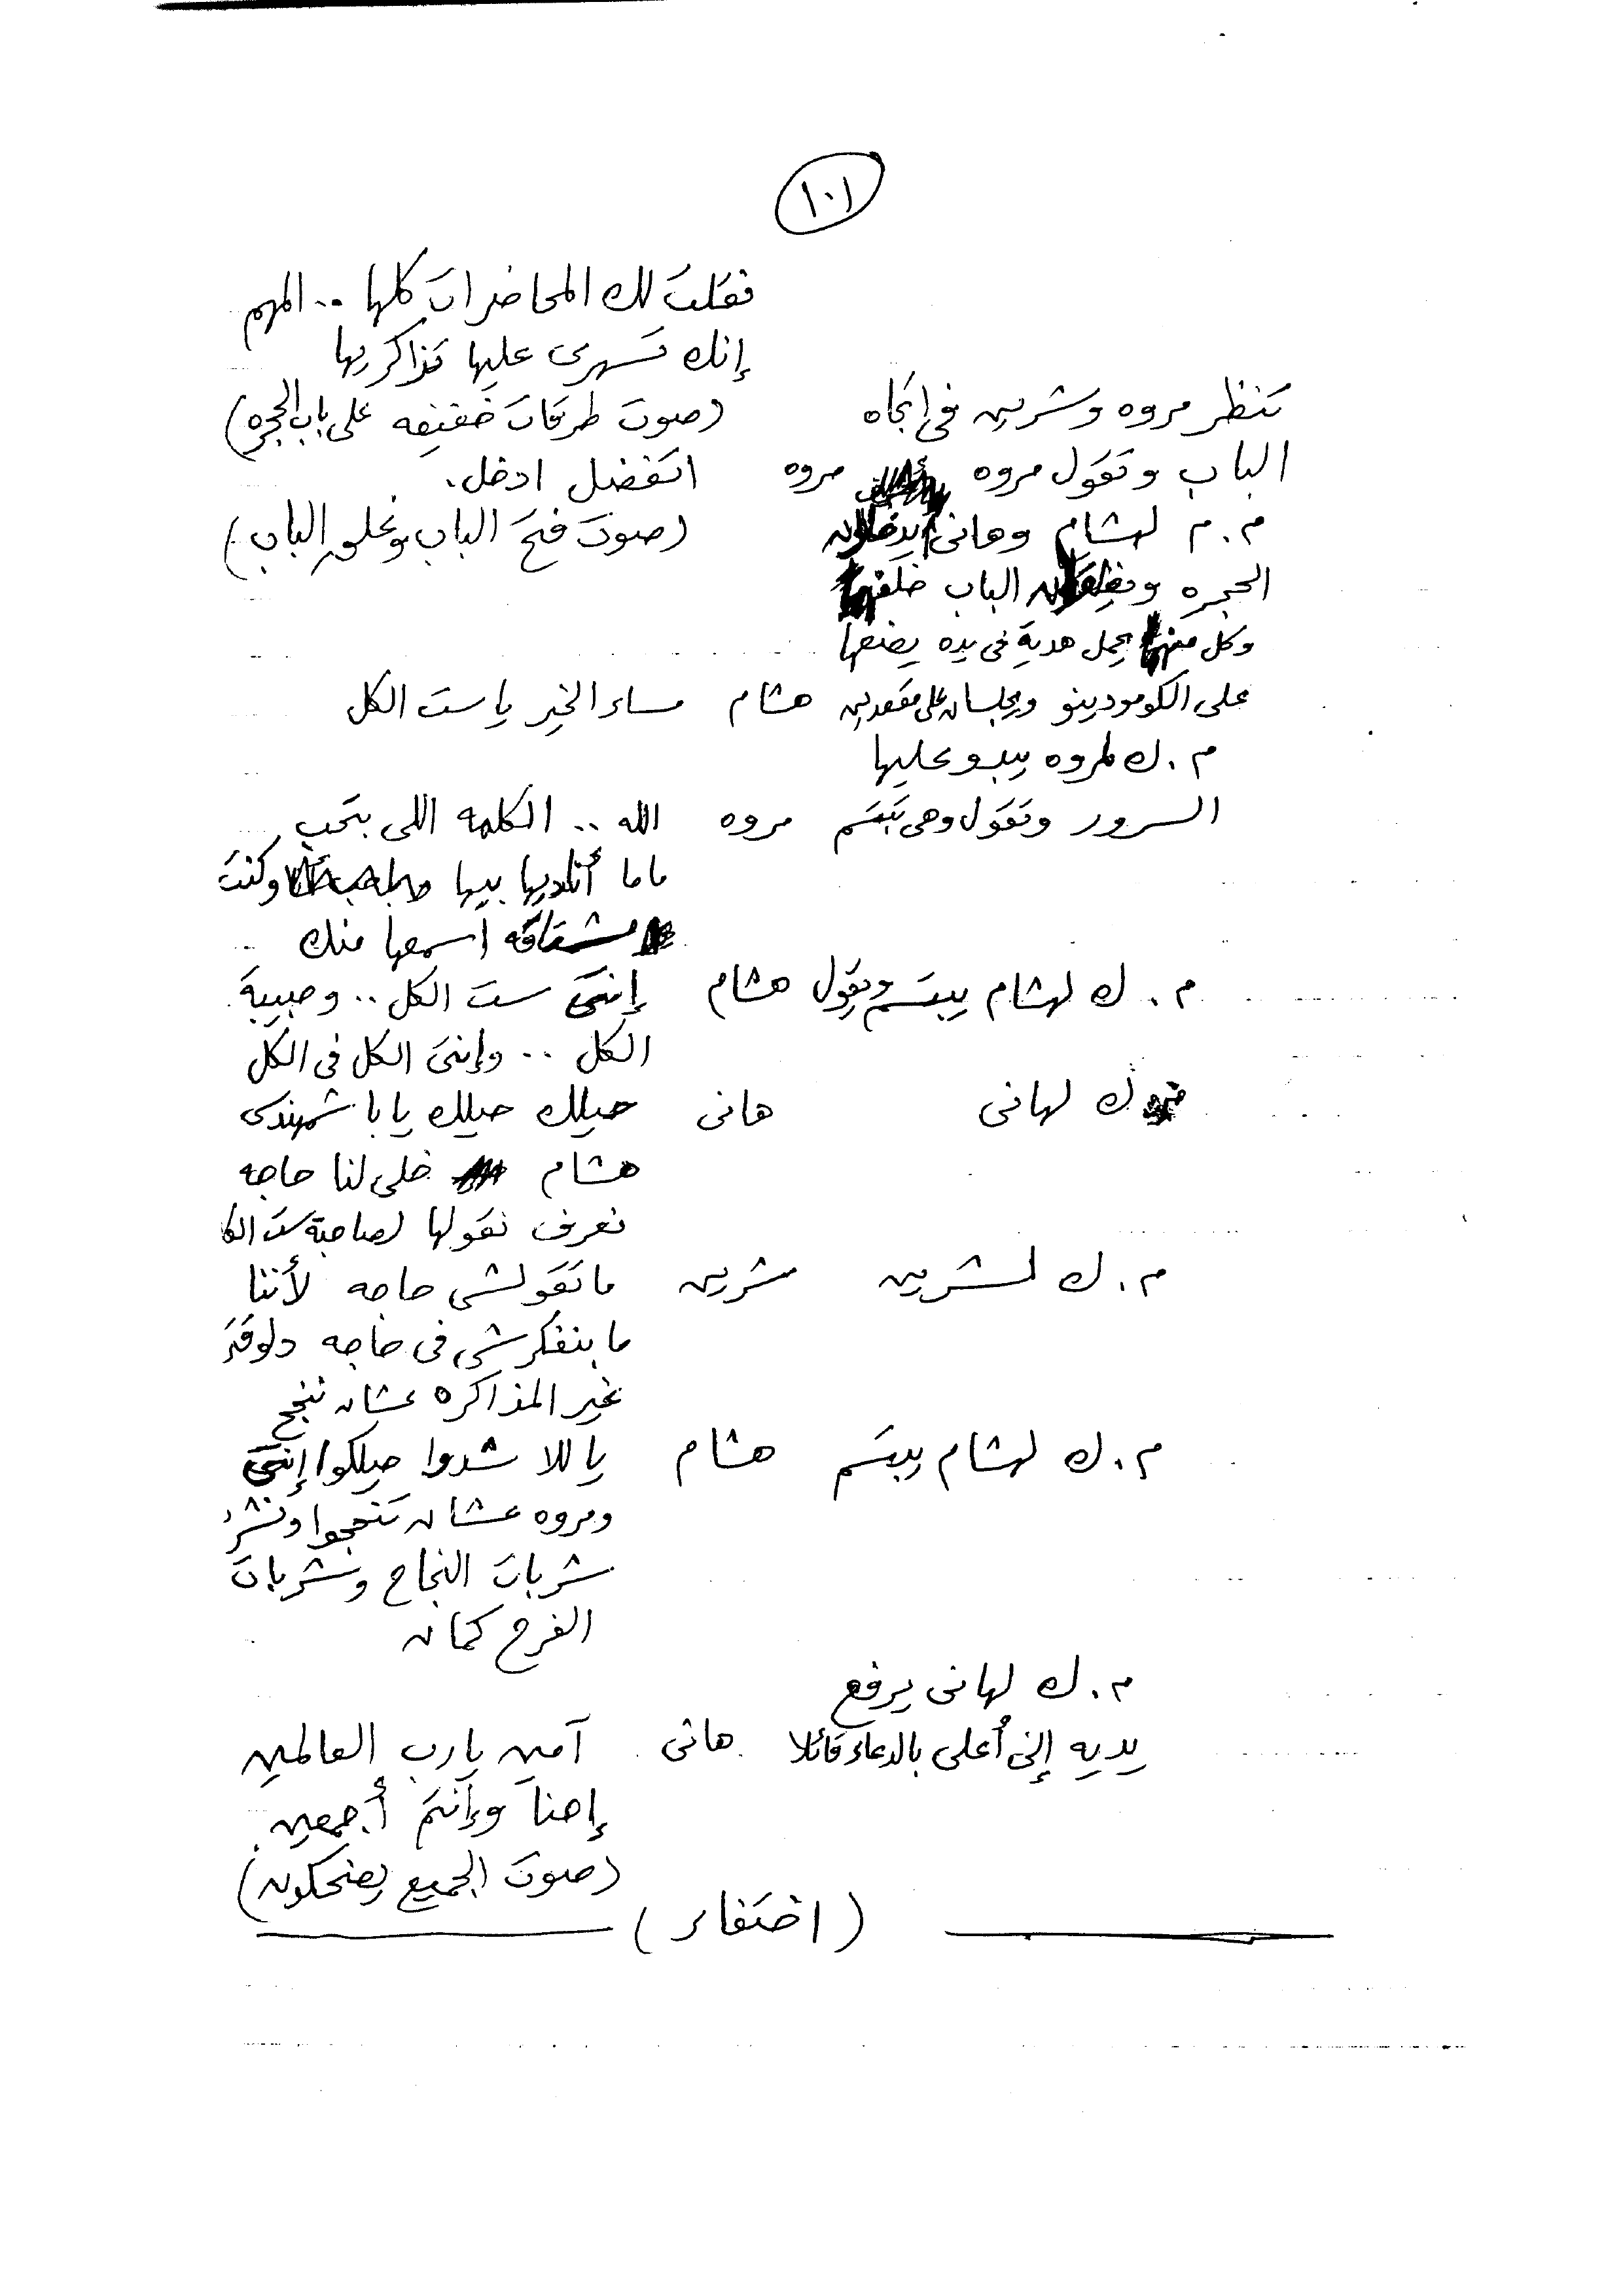 ١٠١
نقلت لك المحاضرات كلها .. المهم
إنك تسهرى عليها تذاكريها
تنظر مروه وشرين فى إتجاه (صوت طرقات خفيفه على باب الحجره)
الباب وتقول مروه مروه اتفضل ادخل.
م.م لهشام وهانى يدخلان (صوت فتح الباب وغلق الباب)
الحجره ويغلقان الباب خلفهما
وكل منهما يحمل هدية فى يده يضعها
على الكومودينو ويجلسان على مقعدين هشام مساء الخير يا ست الكل
م.ك لمروه يبدو عليها
السرور وتقول وهى تبتسم مروه الله .. الكلمه اللى بتحب
ماما أناديها بيها وكنت
مشتاقه اسمعها منك
م.ك لهشام يبتسم ويقول هشام إنتى ست الكل .. وحبيبة
الكل .. وإنتى الكل فى الكل
م.ك لهانى هانى حيلك حيلك يا باشمهندس
هشام خلى لنا حاجه
نعرف نقولها لصاحبة ست الكل
م.ك لشرين شرين ما تقولش حاجه لأننا
ما بنفكرش فى حاجه دلوقتى
غير المذاكره عشان ننجح
م.ك لهشام يبتسم هشام ياللا شدوا حيلكوا إنتى
ومروه عشان تنجحوا ونشرب
شربات النجاح وشربات
الفرح كمان
م.ك لهانى يرفع
يديه إلى أعلى بالدعاء قائلا هانى آمين يارب العالمين
إحنا وإنتم أجمعين
(صوت الجميع يضحكون)
(اختفاء)